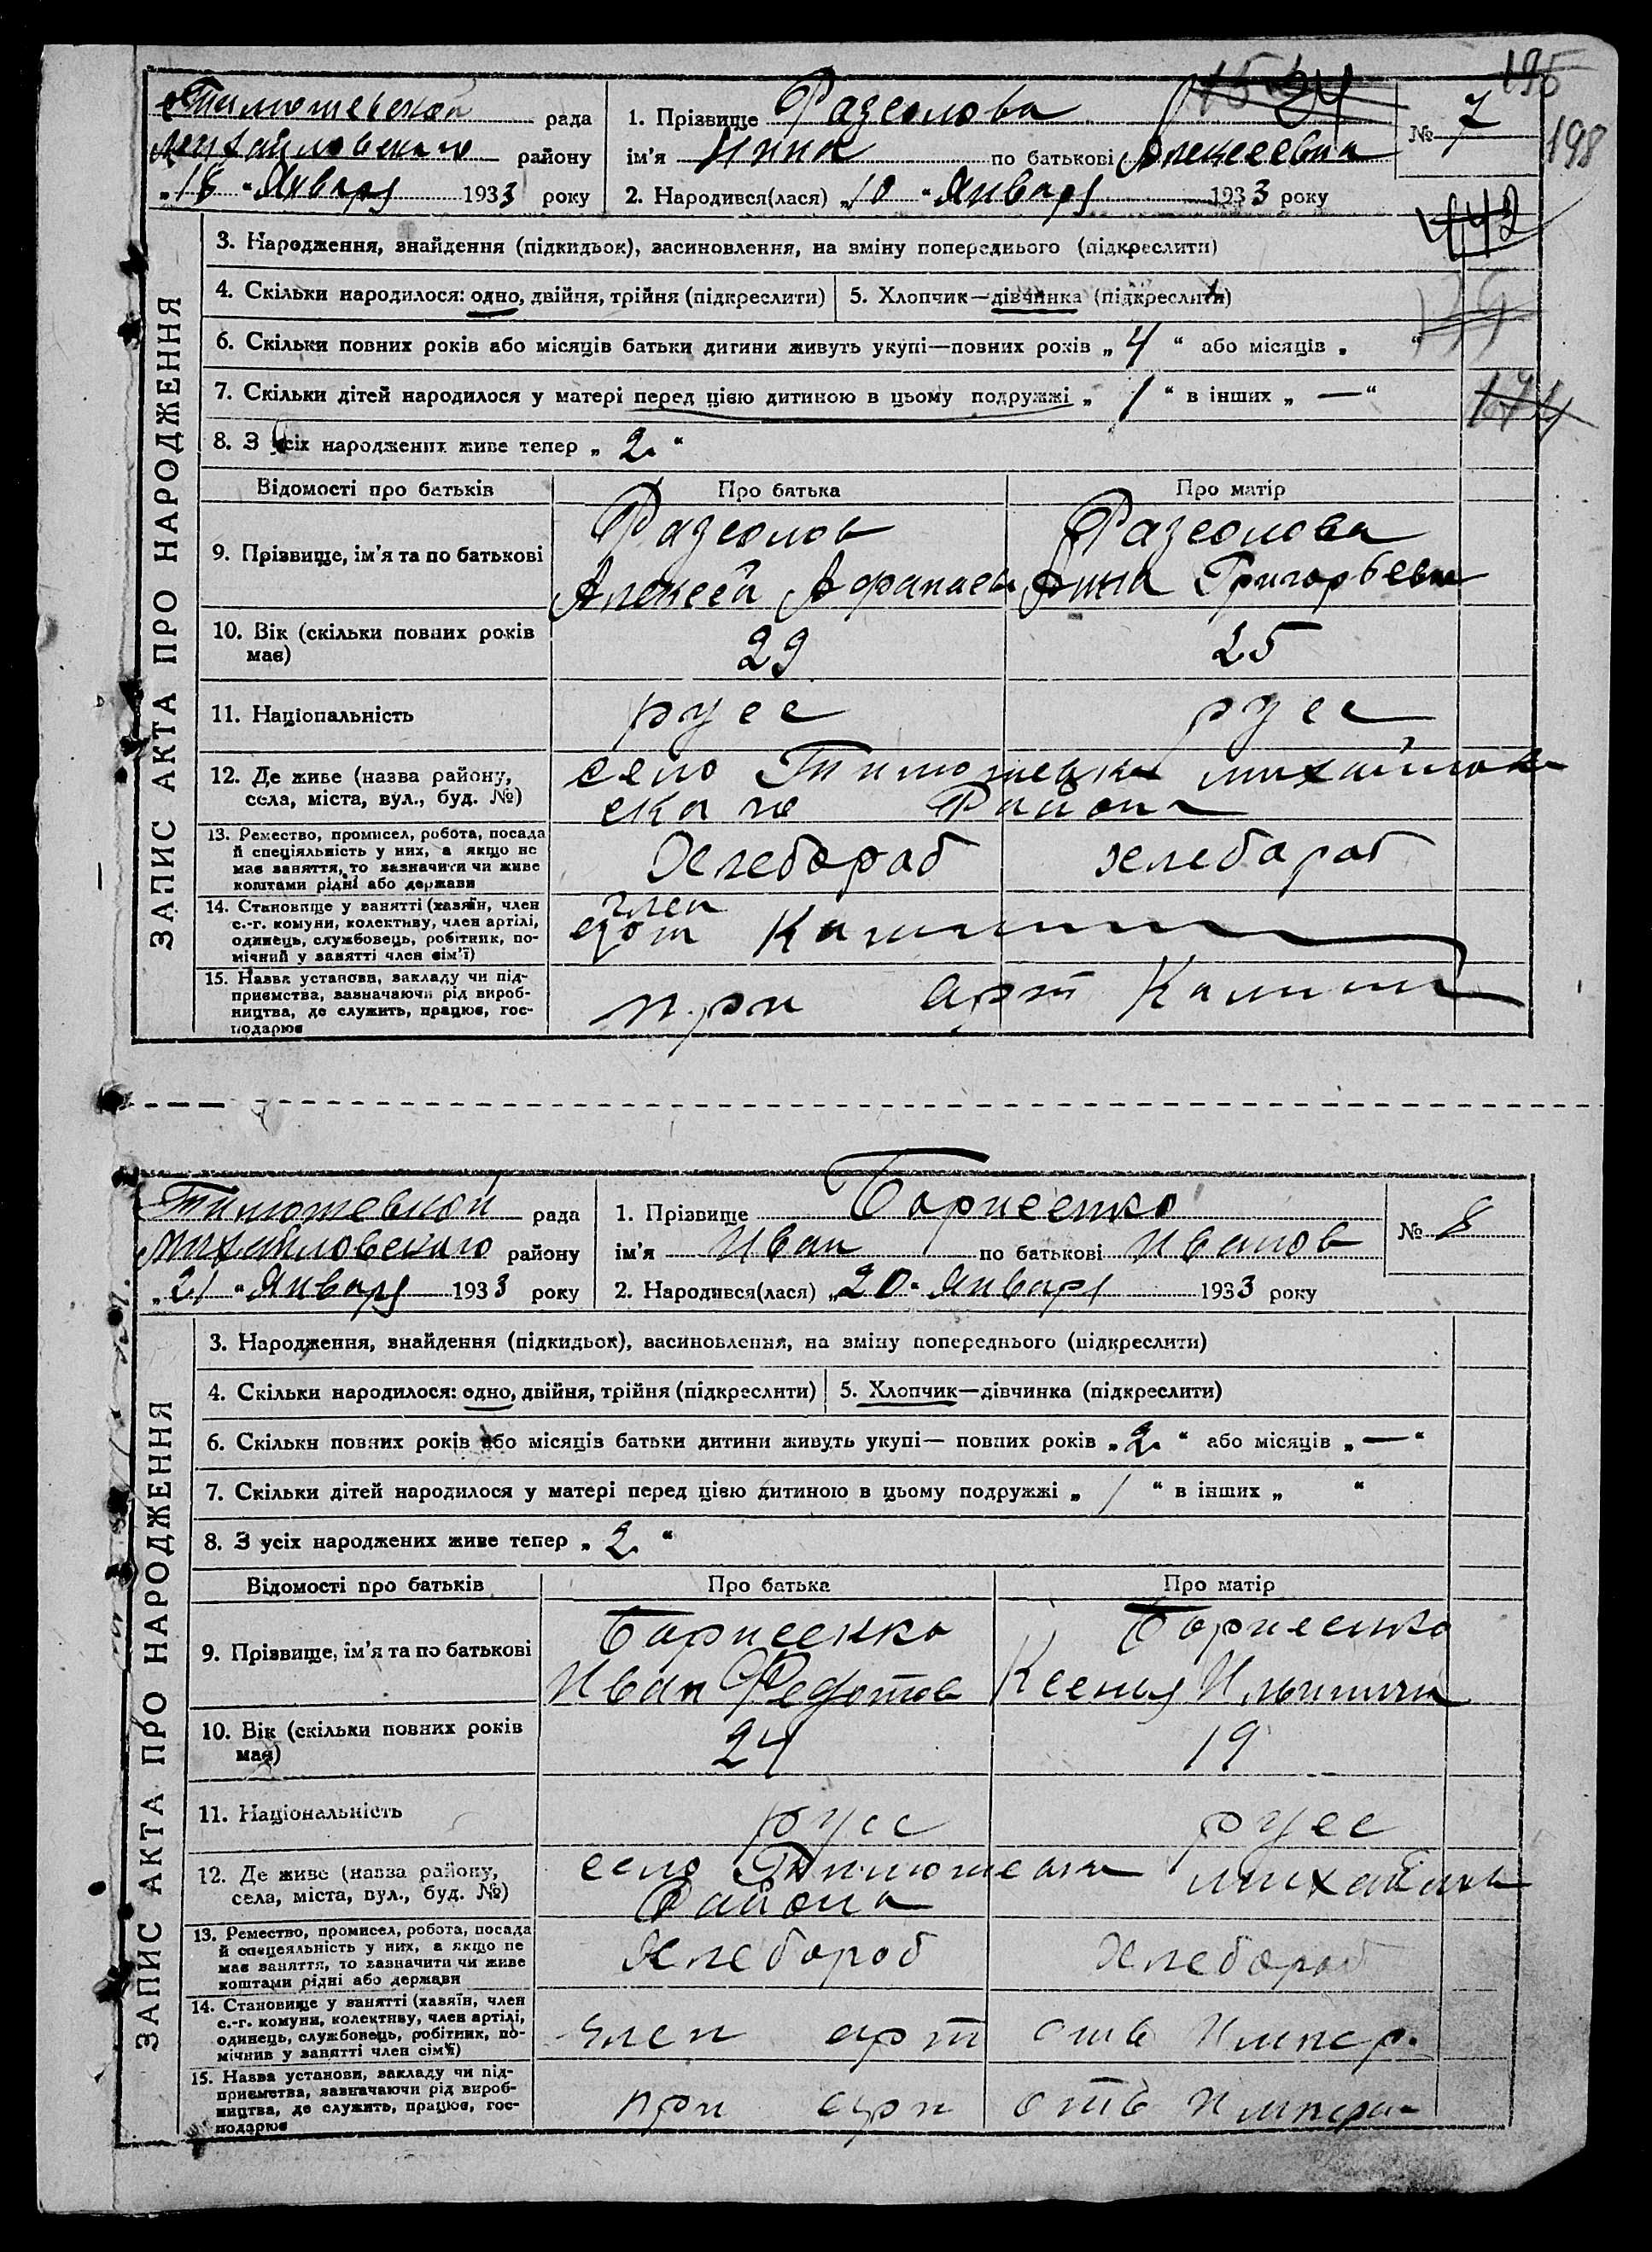 195
198
Тимошевской рада
Михайловского району
„18“ Января 1933 року
1. Прізвище Разсолова
ім'я Нина по батькові Алексеевна
2. Народився(лася) „10“ Января 1933 року
№ 7
442
174
ЗАПИС АКТА ПРО НАРОДЖЕННЯ
3. Народження, знайдення (підкидьок), засиновлення, на зміну попереднього (підкреслити)
4. Скільки народилося: одно, двійня, трійня (підкреслити) 5. Хлопчик—дівчинка (підкреслити)
6. Скільки повних років або місяців батьки дитини живуть укупі—повних років „ 4 “ або місяців „ “
7. Скільки дітей народилося у матері перед цією дитиною в цьому подружжі „ 1 “ в інших „ — “
8. З усіх народжених живе тепер „ 2 “
Відомості про батьків Про батька Про матір
9. Прізвище, ім'я та по батькові
Разсолов Разсолова
Алексей Афанасьев Анна Григорьевна
10. Вік (скільки повних років має) 29 25
11. Національність русс русс
12. Де живе (назва району, села, міста, вул., буд. №)
село Тимошевка Михайлов
ского Района
13. Ремество, промисел, робота, посада й спеціяльність у них, а якщо не має заняття, то зазначити чи живе коштами рідні або держави
Хлебороб хлебороб
14. Становище у занятті (хазяїн, член с.-г. комуни, колективу, член артілі, одинець, службовець, робітник, помічний у занятті член сім'ї)
член
15. Назва установи, закладу чи підприємства, зазначаючи рід виробництва, де служить, працює, господарює
при арт Калинин
Тимошевской рада
Михайловского району
„21“ Января 1933 року
1. Прізвище Борисенко
ім'я Иван по батькові Иванов
2. Народився(лася) „20“ Января 1933 року
№ 8
ЗАПИС АКТА ПРО НАРОДЖЕННЯ
3. Народження, знайдення (підкидьок), засиновлення, на зміну попереднього (підкреслити)
4. Скільки народилося: одно, двійня, трійня (підкреслити) 5. Хлопчик—дівчинка (підкреслити)
6. Скільки повних років або місяців батьки дитини живуть укупі— повних років „ 2 “ або місяців „ — “
7. Скільки дітей народилося у матері перед цією дитиною в цьому подружжі „ 1 “ в інших „ “
8. З усіх народжених живе тепер „ 2 “
Відомості про батьків Про батька Про матір
9. Прізвище, ім'я та по батькові
Борисенко Борисенко
Иван Федотов Ксения Ильинична
10. Вік (скільки повних років має) 24 19
11. Національність русс русс
12. Де живе (назва району, села, міста, вул., буд. №)
село Тимошевка
Района
13. Ремество, промисел, робота, посада й спецеяльність у них, а якщо не має заняття, то зазначити чи живе коштами рідні або держави
Хлебороб Хлебороб
14. Становище у занятті (хазяїн, член с.-г. комуни, колективу, член артілі, одинець, службовець, робітник, помічнив у занятті член сім'ї)
член арт
15. Назва установи, закладу чи підприємства, зазначаючи рід виробництва, де служить, працює, господарює
при